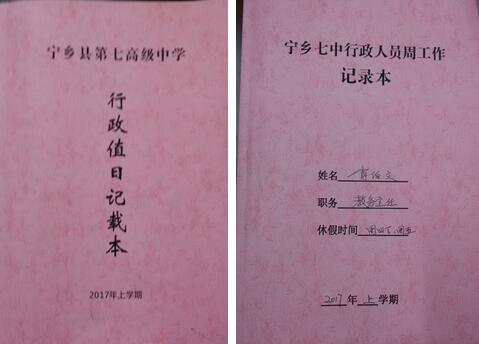 宁乡县第七高级中学
行政值日记载本
2017年上学期
宁乡七中行政人员周工作
记录本
姓名
职务 教务主任
休假时间 周四下、周五
2017 年 上 学期